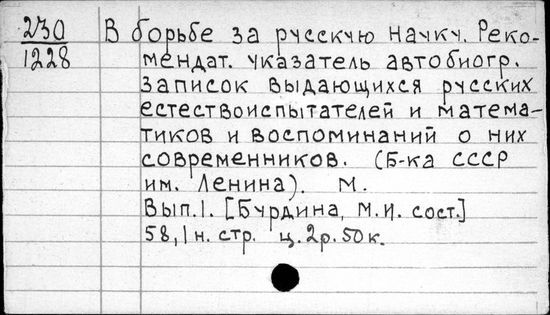 230 В борьбе за русскую науку. Реко-
1228 мендат. указатель автобиогр.
записок выдающихся русских
естествоиспытателей и матема-
тиков и воспоминаний о них
современников. (Б-ка СССР
им. Ленина). М.
Вып. 1. [Бурдина, М.И. сост.]
58, 1 н. стр. ц. 2 р. 50 к.